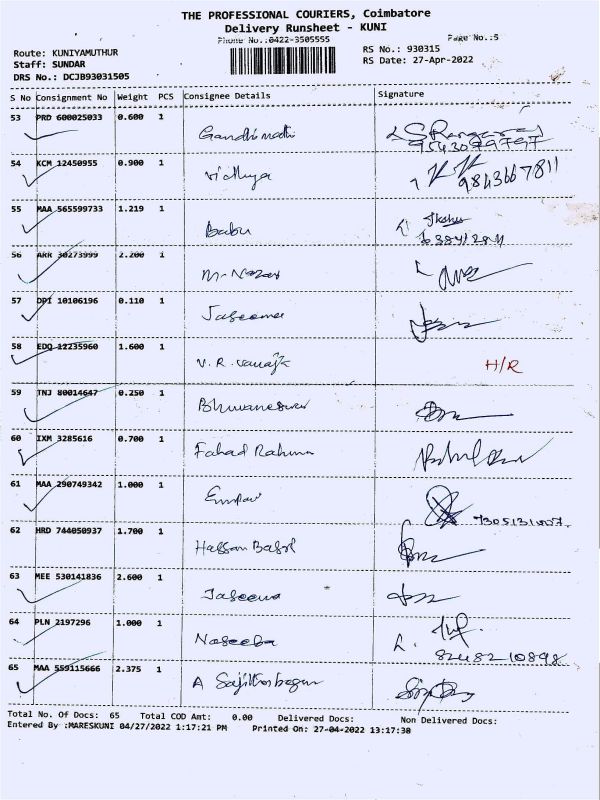 THE PROFESSIONAL COURIERS, Coimbatore
Delivery Runsheet - KUNI
Phone No.:0422-3505555
Page No.:5
Route: KUNIYAMUTHUR
RS No.: 930315
Staff: SUNDAR
RS Date: 27-Apr-2022
DRS No.: DCJB93031505
S No Consignment No Weight PCS Consignee Details Signature
53 PRD 600025033 0.600 1 Gandhimathi
9543079797
54 KCM 12450955 0.900 1 Vidhya
9843667811
55 MAA 565599733 1.219 1 Babu
56 ARR 30273999 2.200 1
57 DPI 10106196 0.110 1 Jaseema
58 EDQ 12235960 1.600 1 V. R. H/R
59 TNJ 80014647 0.250 1 Bhuvaneswari
60 IXM 3285616 0.700 1 Fahad Rahman
61 MAA 290749342 1.000 1
62 HRD 744050937 1.700 1 Hassan Basri
63 MEE 530141836 2.600 1 Jaseena
64 PLN 2197296 1.000 1 Naseeba
8248210898
65 MAA 559115666 2.375 1 A
Total No. Of Docs: 65 Total COD Amt: 0.00 Delivered Docs: Non Delivered Docs:
Entered By :MARESKUNI 04/27/2022 1:17:21 PM Printed On: 27-04-2022 13:17:38